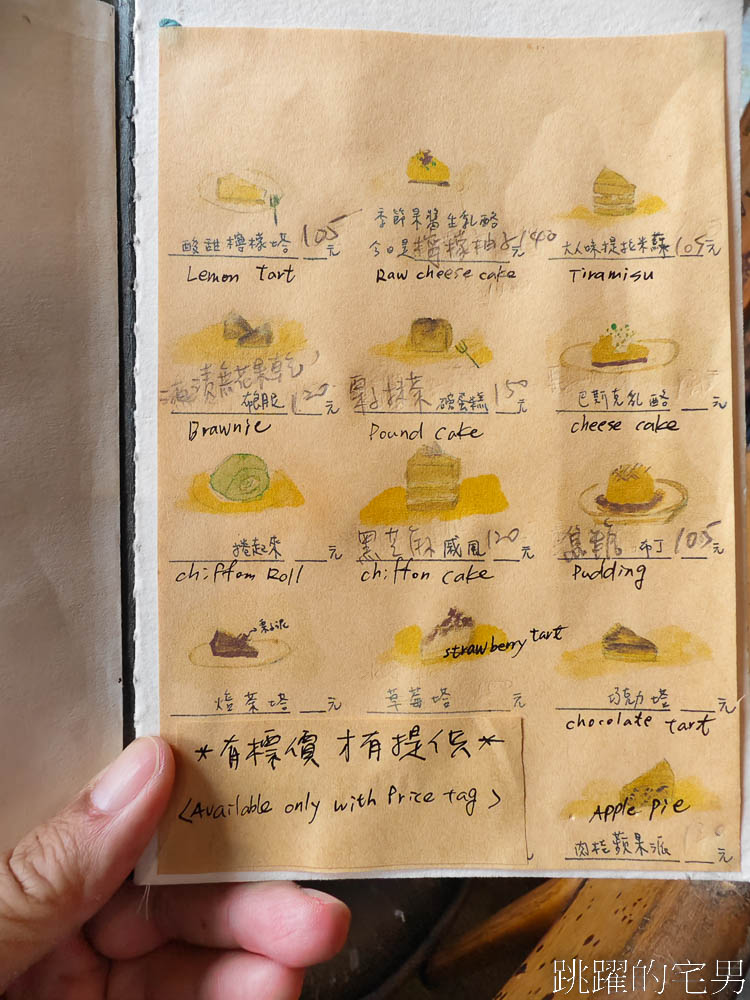 酸甜檸檬塔 105元
Lemon tart
季節果醬生乳酪
今日是檸檬柚子140
元
Raw cheese cake
大人味提拉米蘇105元
Tiramisu
酒漬無花果乾
布朗尼 120元
Brawnie
栗子抹茶 磅蛋糕 150元
Pound cake
巴斯克乳酪 元
cheese cake
捲起來 元
chiffom Roll
黑芝麻 戚風 120元
chiffon cake
焦糖 布丁 105元
Pudding
栗子泥
焙茶塔 元
strawberry tart
草莓塔 元
巧克力塔 元
chocolate tart
*有標價 才有提供*
<Available only with Price tag>
Apple pie
肉桂蘋果派 元
跳躍的宅男